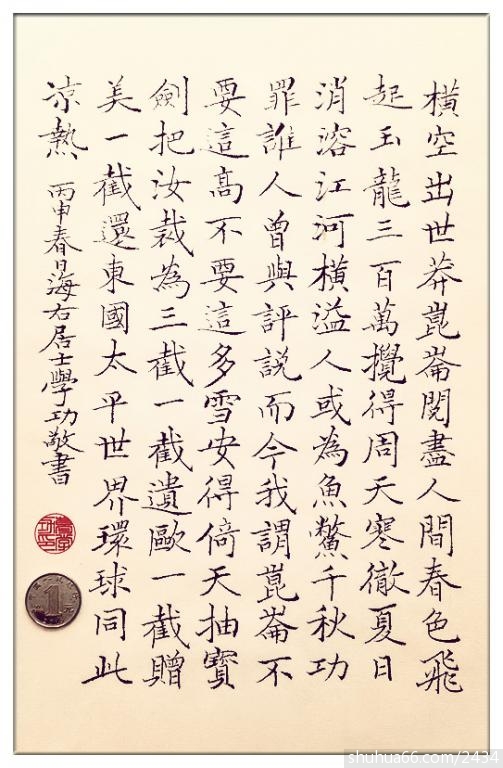 橫空出世莽崑崙閱盡人間春色飛
起玉龍三百萬攪得周天寒徹夏日
消溶江河橫溢人或為魚鱉千秋功
罪誰人曾與評説而今我謂崑崙不
要這高不要這多雪安得倚天抽寶
劍把汝裁為三截一截遺歐一截贈
美一截還東國太平世界環球同此
凉熱
丙申春日海右居士學功敬書
1
shuhua66.com/2434